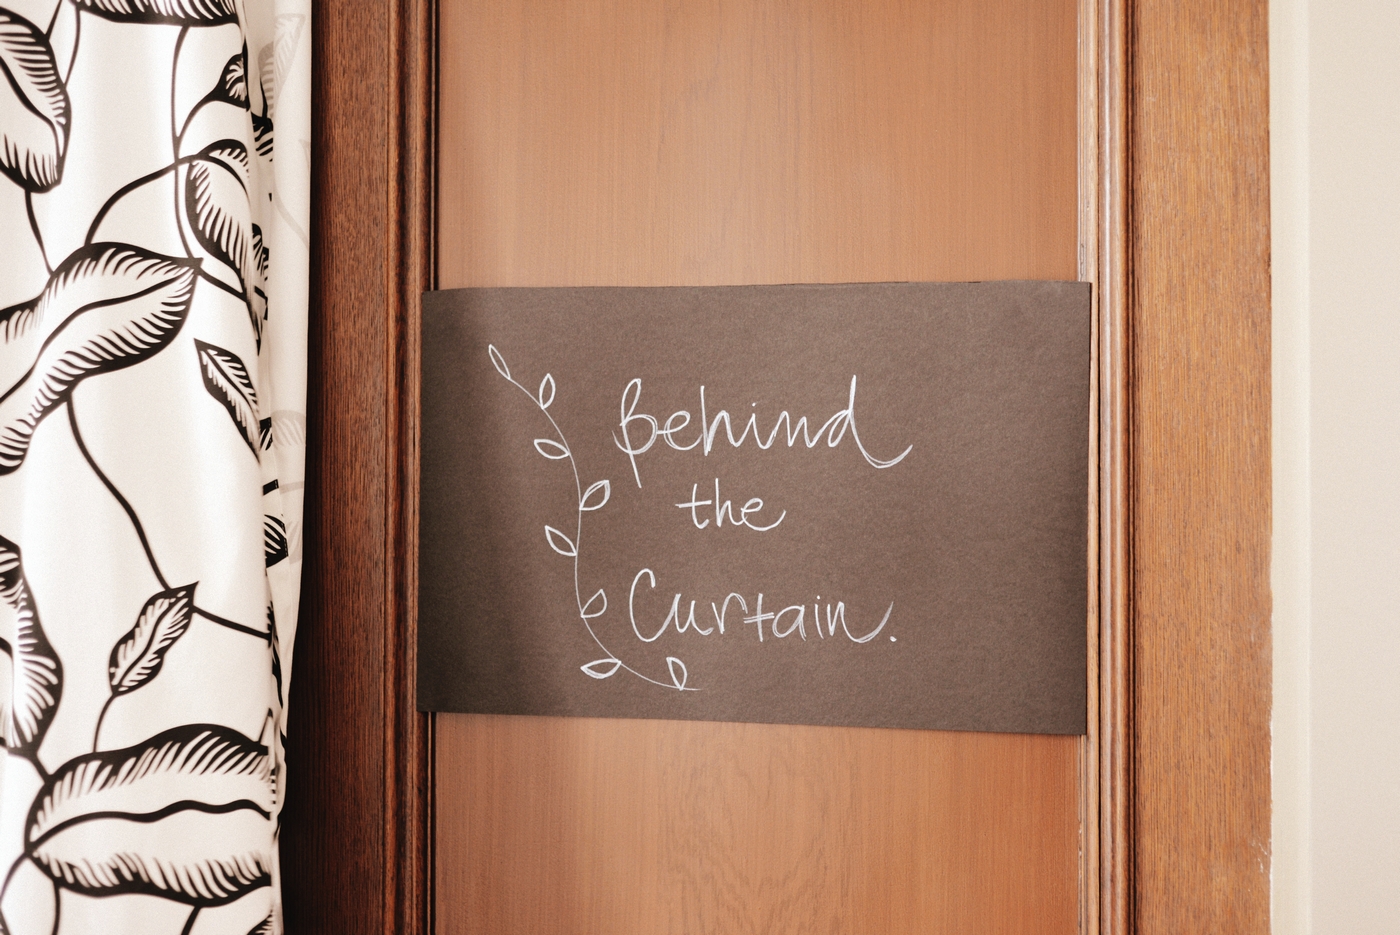 Behind
the
Curtain.